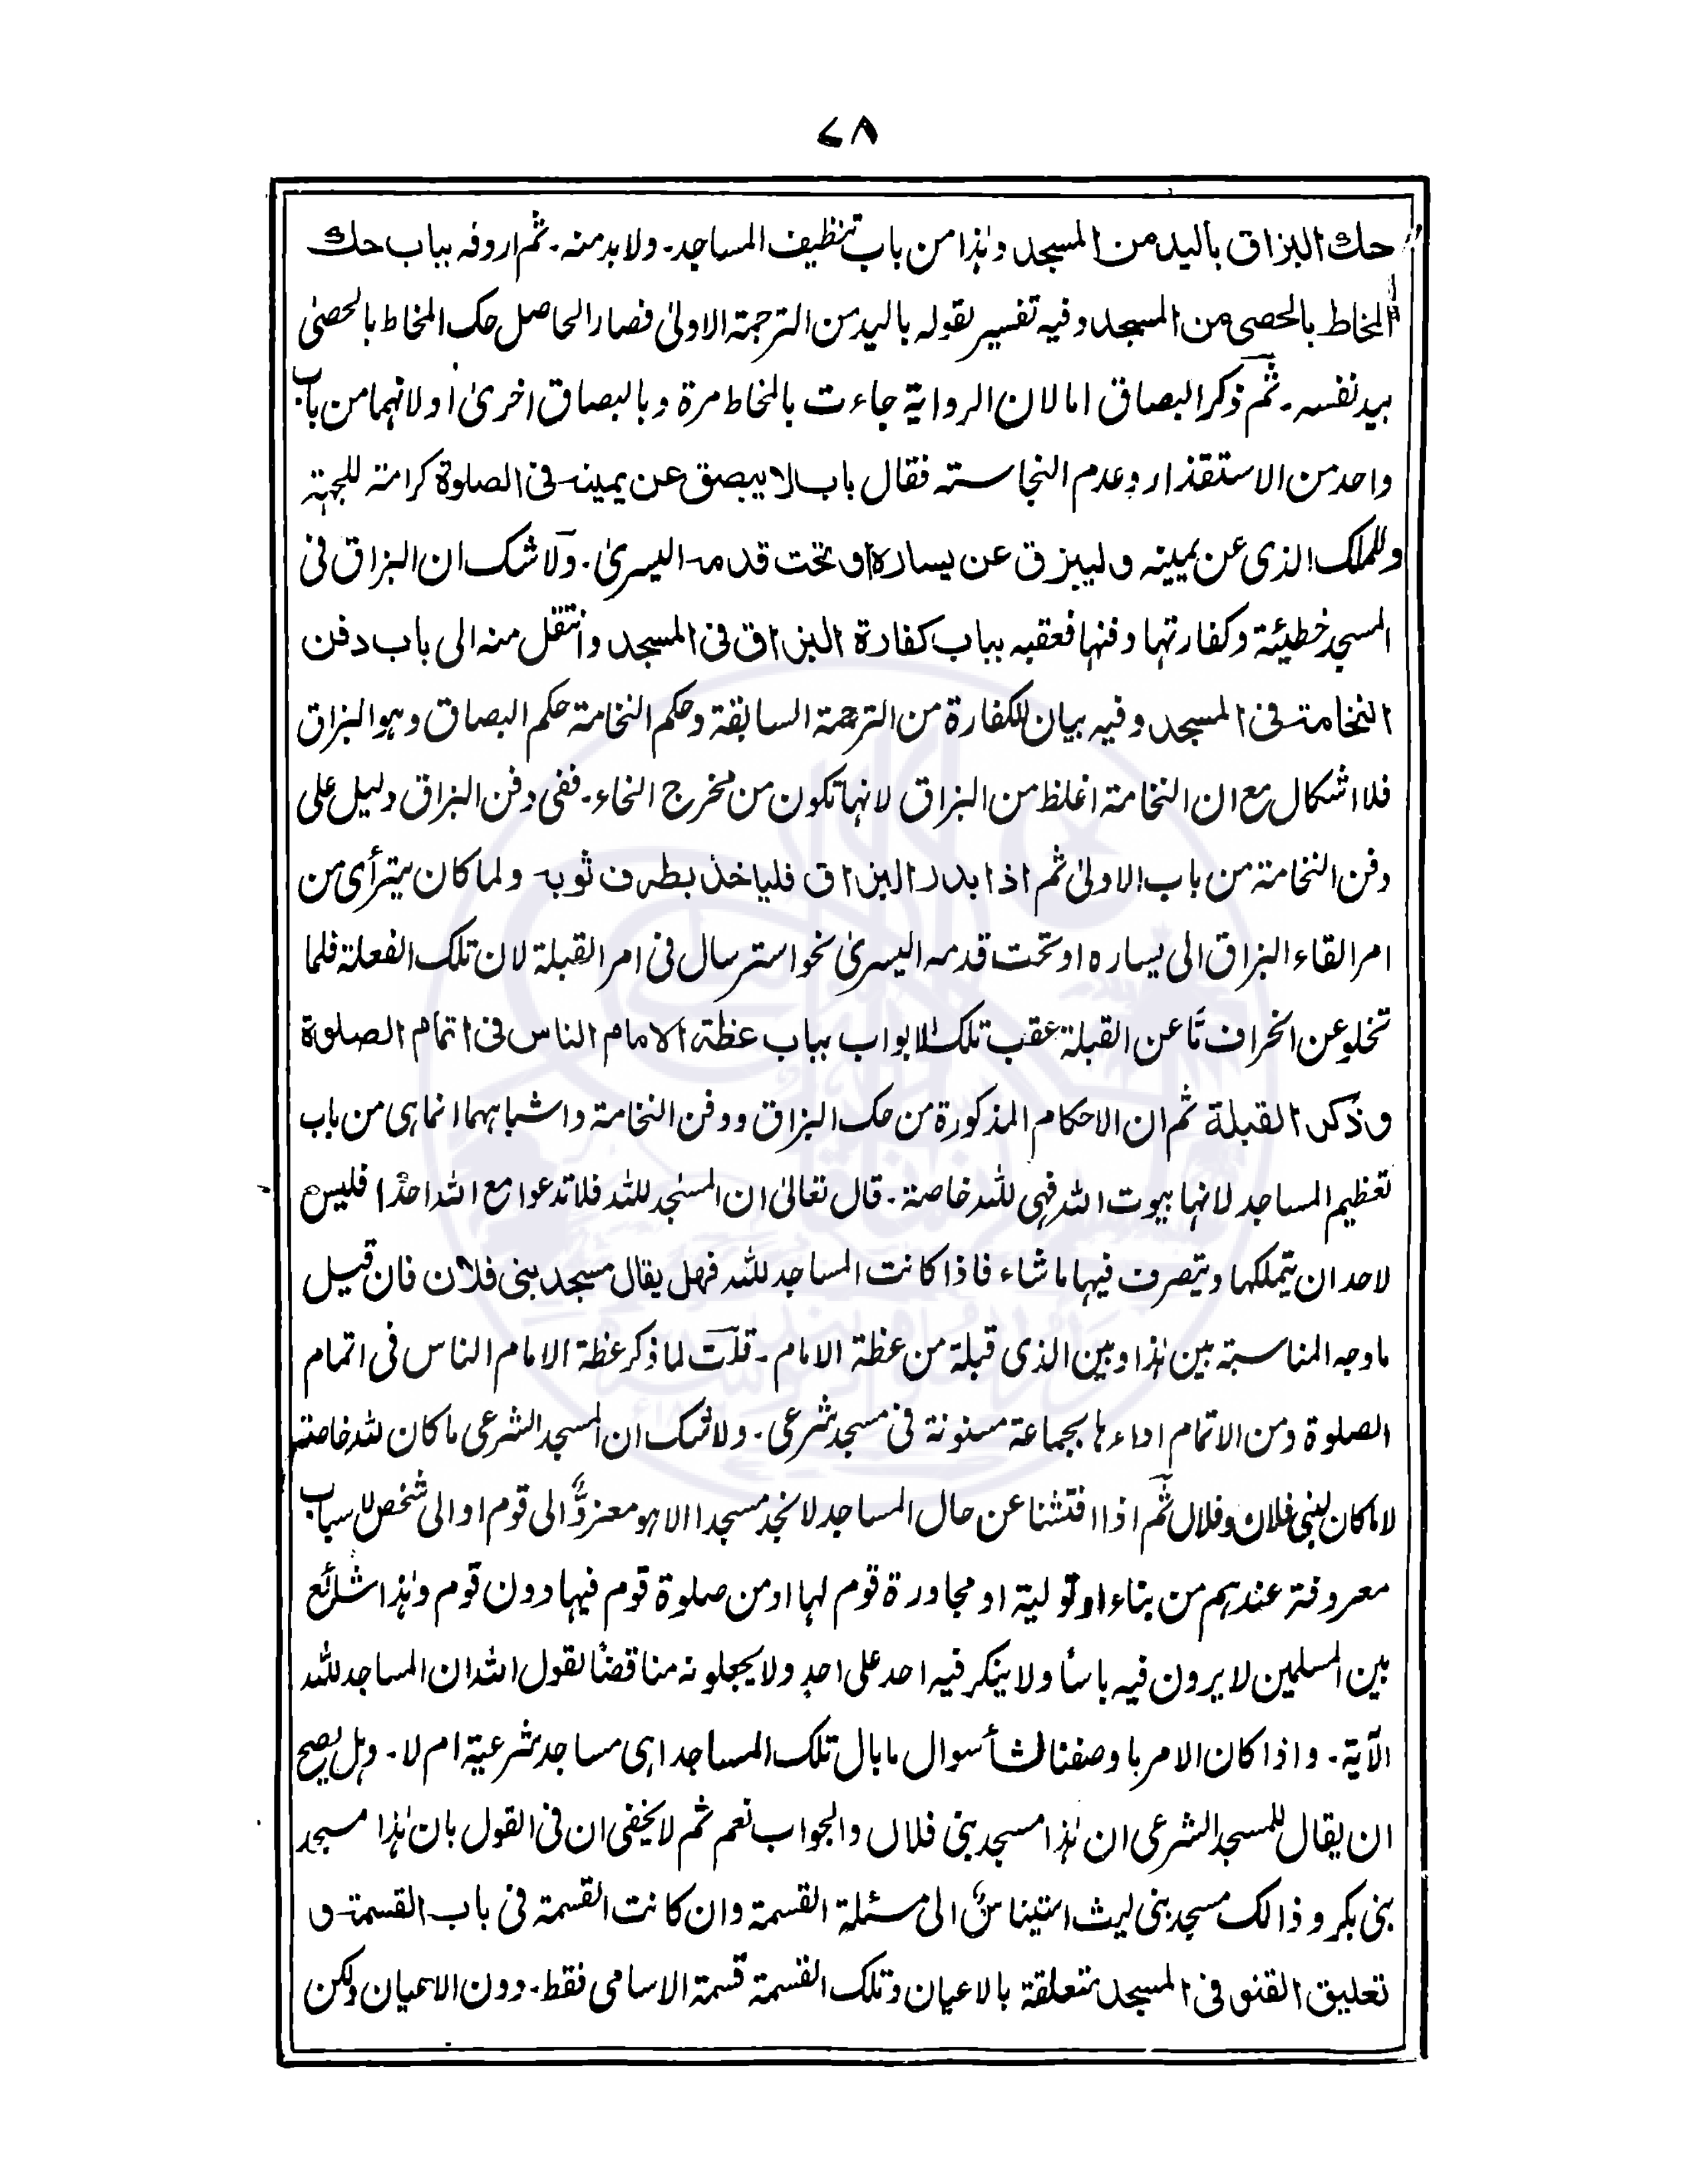 ٧٨
حك البزاق باليد من المسجد وہذا من باب تنظيف المساجد۔ ولا بد منه۔ ثم اردفه بباب حك
المخاط بالحصى من المسجد وفيه تفسير لقوله باليد من الترجمة الاولىٰ فصار الحاصل حك المخاط بالحصىٰ
بيد نفسه۔ ثم ذكر البصاق اما لان الرواية جاءت بالمخاط مرة وبالبصاق اخرىٰ او لانہما من باب
واحد من الاستقذار وعدم النجاسته فقال باب لا يبصق عن يمينه فى الصلوة كرامته للجہته
وللملك الذى عن يمينه و ليبزق عن يساره او تحت قدمه اليسرىٰ۔ ولا شك ان البزاق فى
المسجد خطيئة وكفارتہا دفنہا فعقبه بباب كفارة البزاق فى المسجد وانتقل منه الى باب دفن
النخامة فى المسجد وفيه بيان للكفارة من الترجمة السابقة وحكم النخامته حكم البصاق وہو البزاق
فلا اشكال مع ان النخامته اغلظ من البزاق لانہا تكون من مخرج الخاء۔ ففى دفن البزاق دليل على
دفن النخامته من باب الاولىٰ ثم اذا بدر البزاق فلياخذ بطرف ثوبه ولما كان يترأى من
امر القاء البزاق الى يساره او تحت قدمه اليسرىٰ نحو استرسال فى امر القبلة لان تلك الفعلة فلما
تخلو عن انحراف مّا عن القبلة عقب تلك الابواب بباب عظة الامام الناس فى اتمام الصلوة
و ذكر القبلة ثم ان الاحكام المذكورة من حك البزاق ودفن النخامته واشباہہما انماہى من باب
تعظيم المساجد لانہا بيوت اللہ فہى للہ خاصته۔ قال تعالىٰ ان المسٰجد للہ فلا تدعوا مع اللہ احدًا فليس
لاحد ان يتملكہا ويتصرف فيہا ما شاء فاذا كانت المساجد للہ فہل يقال مسجد بنى فلان فان قيل
ما وجه المناسبتہ بين ہٰذا وبين الذى قبلة من عظة الامام۔ قلت لما ذكر عظة الامام الناس فى اتمام
الصلوة ومن الاتمام اداءہا بجماعة مسنونة فى مسجد شرعى۔ ولا شك ان المسجد الشرعى ما كان للہ خاصته
لا ما كان لبنى فلان وفلان ثم اذا افتشنا عن حال المساجد لا نجد مسجدا الا ہو معزوٌّ الى قوم او الى شخص لاسباب
معروفتہ عندہم من بناء او تولية او مجاورة قوم لہا او من صلوة قوم فيہا دون قوم وہٰذا شائع
بين المسلمين لا يرون فيه باسًا ولا ينكر فيه احد على احدٍ ولا يجعلونه مناقضًا لقول اللہ ان المساجد للہ
الآية۔ واذا كان الامر باوصفنا لنشأ سوال ما بال تلك المساجد اہى مساجد شرعية ام لا۔ وہل يصح
ان يقال للمسجد الشرعى ان ہٰذا مسجد بنى فلاں والجواب نعم ثم لا يخفى ان فى القول بان ہٰذا مسجد
بنى بكر وذالك مسجد بنى ليث استيناسٌ الى مسئلة القسمة وان كانت القسمة فى باب القسمة و
تعليق القنو فى المسجد متعلقة بالاعيان وتلك القسمة قسمة الاسامى فقط۔ دون الاعيان ولكن